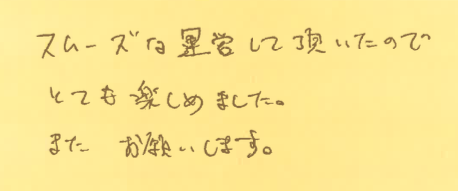 スムーズな運営して頂いたので
とても楽しめました。
また お願いします。